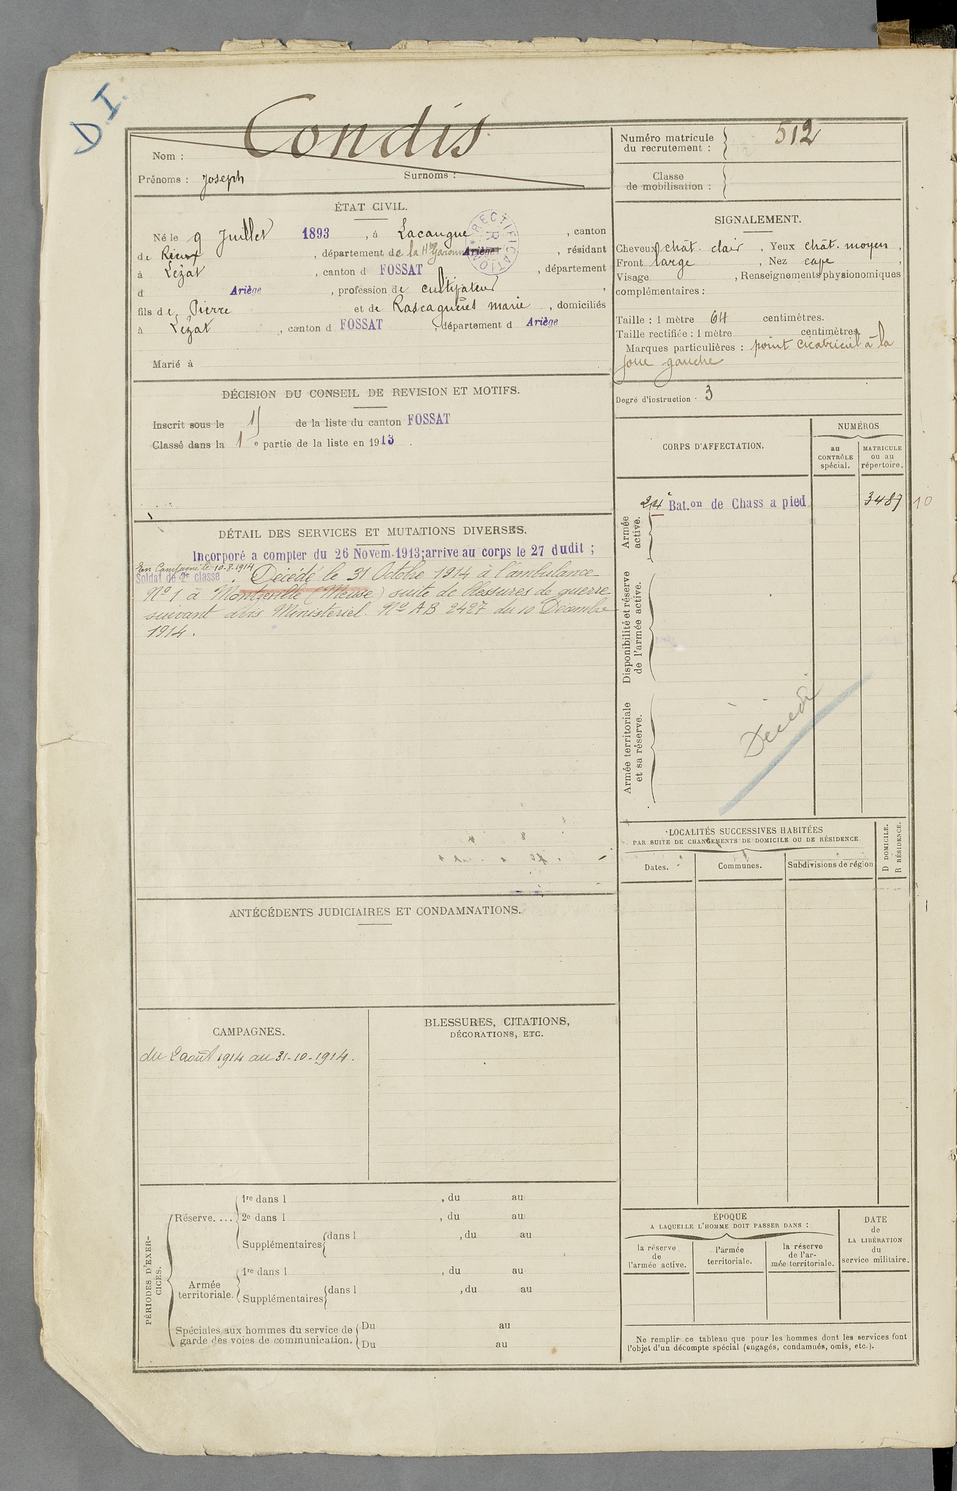 D.I.
Condis
Nom :
Prénoms : Joseph Surnoms :
ÉTAT CIVIL.
Né le 9 Juillet 1893, à Lacaugne, canton
de Rieux, département de la Hte Garonne Ariège, résidant
à Lézat, canton d FOSSAT, département
d Ariège, profession de cultivateur,
fils de Pierre et de Rascagnères marie, domiciliés
à Lézat, canton d FOSSAT, département d Ariège
Marié à
RECTIFICATION
DÉCISION DU CONSEIL DE REVISION ET MOTIFS.
Inscrit sous le de la liste du canton FOSSAT
Classé dans la 1e partie de la liste en 1913.
DÉTAIL DES SERVICES ET MUTATIONS DIVERSES.
Incorporé a compter du 26 Novem.1913;arrive au corps le 27 dudit ;
En Campagne le 10-8-1914
Soldat de 2e classe. Décédé le 31 Octobre 1914 à l'ambulance
No 1 à Montzeville (Meuse) suite de blessures de guerre
suivant avis Ministeriel No AB 2427 du 10 Décembre
1914.
ANTÉCÉDENTS JUDICIAIRES ET CONDAMNATIONS.
CAMPAGNES.
du 2 août 1914 au 31-10-1914.
BLESSURES, CITATIONS,
DÉCORATIONS, ETC.
PÉRIODES D'EXER-
CICES.
Réserve....
1re dans l , du au
2e dans l , du au
Supplémentaires dans l , du au
Armée
territoriale.
1re dans l , du au
Supplémentaires dans l , du au
Spéciales aux hommes du service de
garde des voies de communication.
Du au
Du au
Numéro matricule
du recrutement : 512
Classe
de mobilisation :
SIGNALEMENT.
Cheveux chât. clair, Yeux chât. moyen,
Front large, Nez cave,
Visage , Renseignements physionomiques
complémentaires :
Taille : 1 mètre 64 centimètres.
Taille rectifiée : 1 mètre centimètres
Marques particulières : point cicatriciel à la
joue gauche
Degré d'instruction : 3
CORPS D'AFFECTATION.
NUMÉROS
au
CONTRÔLE
spécial.
MATRICULE
ou au
répertoire.
Armée
active.
24e Bat.on de Chass a pied 3487 10
Disponibilité et réserve
de l'armée active.
Armée territoriale
et sa réserve.
Décédé
LOCALITÉS SUCCESSIVES HABITÉES
PAR SUITE DE CHANGEMENTS DE DOMICILE OU DE RÉSIDENCE.
Dates. Communes. Subdivisions de région
D DOMICILE.
R RÉSIDENCE.
ÉPOQUE
A LAQUELLE L'HOMME DOIT PASSER DANS :
la réserve
de
l'armée active.
l'armée
territoriale.
la réserve
de l'ar-
mée territoriale.
DATE
de
LA LIBÉRATION
du
service militaire.
Ne remplir ce tableau que pour les hommes dont les services font
l'objet d'un décompte spécial (engagés, condamnés, omis, etc.).